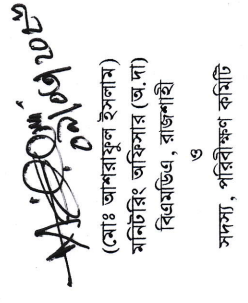 (মোঃ আশরাফুল ইসলাম)
মনিটরিং অফিসার (অ.দা)
বিএমডিএ, রাজশাহী
ও
সদস্য, পরিবীক্ষণ কমিটি